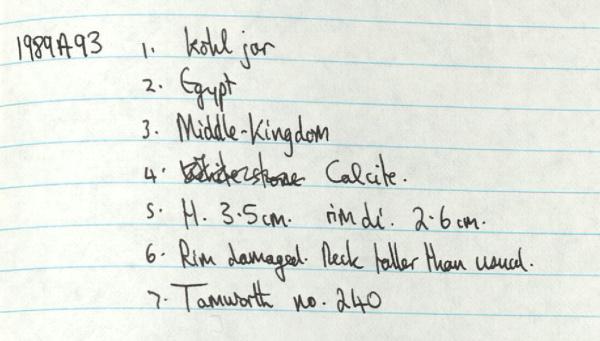 1989A93 1. Kohl jar
2. Egypt
3. Middle-Kingdom
4. Calcite.
5. H. 3.5cm. rim di. 2.6cm.
6. Rim damaged. Neck taller than usual.
7. Tamworth no. 240